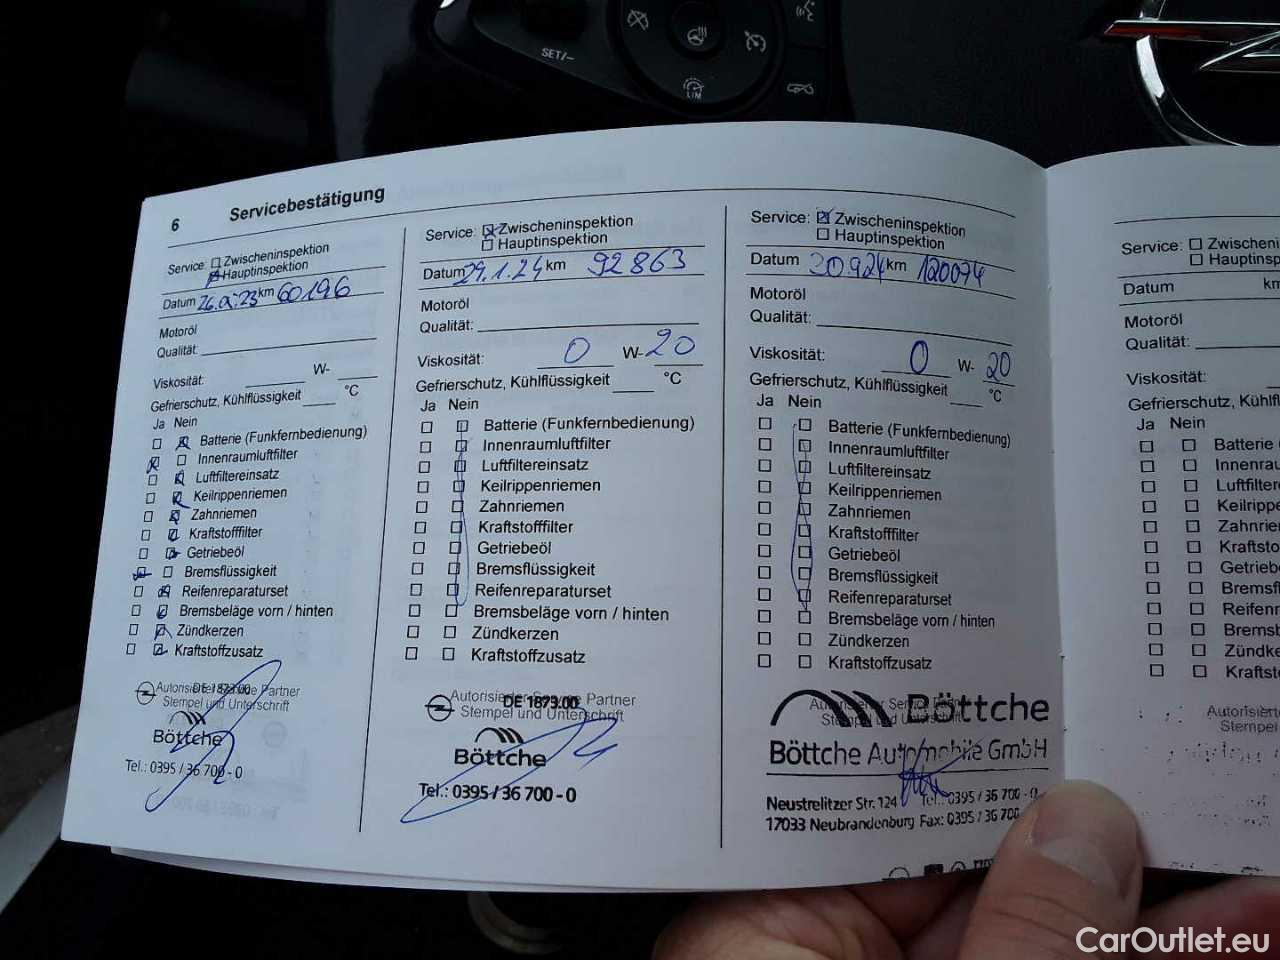 SET/–
LIM
6 Servicebestätigung
Service: Zwischeninspektion
Hauptinspektion
Datum km 60196
Motoröl
Qualität:
Viskosität: W-
Gefrierschutz, Kühlflüssigkeit °C
Ja Nein
Batterie (Funkfernbedienung)
Innenraumluftfilter
Luftfiltereinsatz
Keilrippenriemen
Zahnriemen
Kraftstofffilter
Getriebeöl
Bremsflüssigkeit
Reifenreparaturset
Bremsbeläge vorn / hinten
Zündkerzen
Kraftstoffzusatz
Autorisierter Service Partner
DE 1873.00
Stempel und Unterschrift
Böttche
Tel.: 0395 / 36 700 - 0
Service: Zwischeninspektion
Hauptinspektion
Datum 29.1.24 km 92863
Motoröl
Qualität:
Viskosität: 0 W- 20
Gefrierschutz, Kühlflüssigkeit °C
Ja Nein
Batterie (Funkfernbedienung)
Innenraumluftfilter
Luftfiltereinsatz
Keilrippenriemen
Zahnriemen
Kraftstofffilter
Getriebeöl
Bremsflüssigkeit
Reifenreparaturset
Bremsbeläge vorn / hinten
Zündkerzen
Kraftstoffzusatz
Autorisierter Service Partner
DE 1873.00
Stempel und Unterschrift
Böttche
Tel.: 0395 / 36 700 - 0
Service: Zwischeninspektion
Hauptinspektion
Datum 30.9.24 km 120074
Motoröl
Qualität:
Viskosität: 0 W- 20
Gefrierschutz, Kühlflüssigkeit °C
Ja Nein
Batterie (Funkfernbedienung)
Innenraumluftfilter
Luftfiltereinsatz
Keilrippenriemen
Zahnriemen
Kraftstofffilter
Getriebeöl
Bremsflüssigkeit
Reifenreparaturset
Bremsbeläge vorn / hinten
Zündkerzen
Kraftstoffzusatz
Autorisierter Service Partner
Stempel und Unterschrift
Böttche
Böttche Automobile GmbH
Neustrelitzer Str. 124 Tel.: 0395 / 36 700 - 0
17033 Neubrandenburg Fax: 0395 / 36 700
Service: Zwischenin
Hauptinsp
Datum km
Motoröl
Qualität:
Viskosität:
Gefrierschutz, Kühlfl
Ja Nein
Batterie
Innenra
Luftfilte
Keilripp
Zahnrie
Kraftsto
Getriebe
Bremsfl
Reifenr
Bremsb
Zündke
Kraftst
Autorisierte
Stempel
CarOutlet.eu